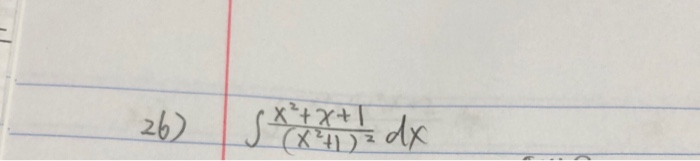 26) ∫ x²+x+1 / (x²+1)² dx